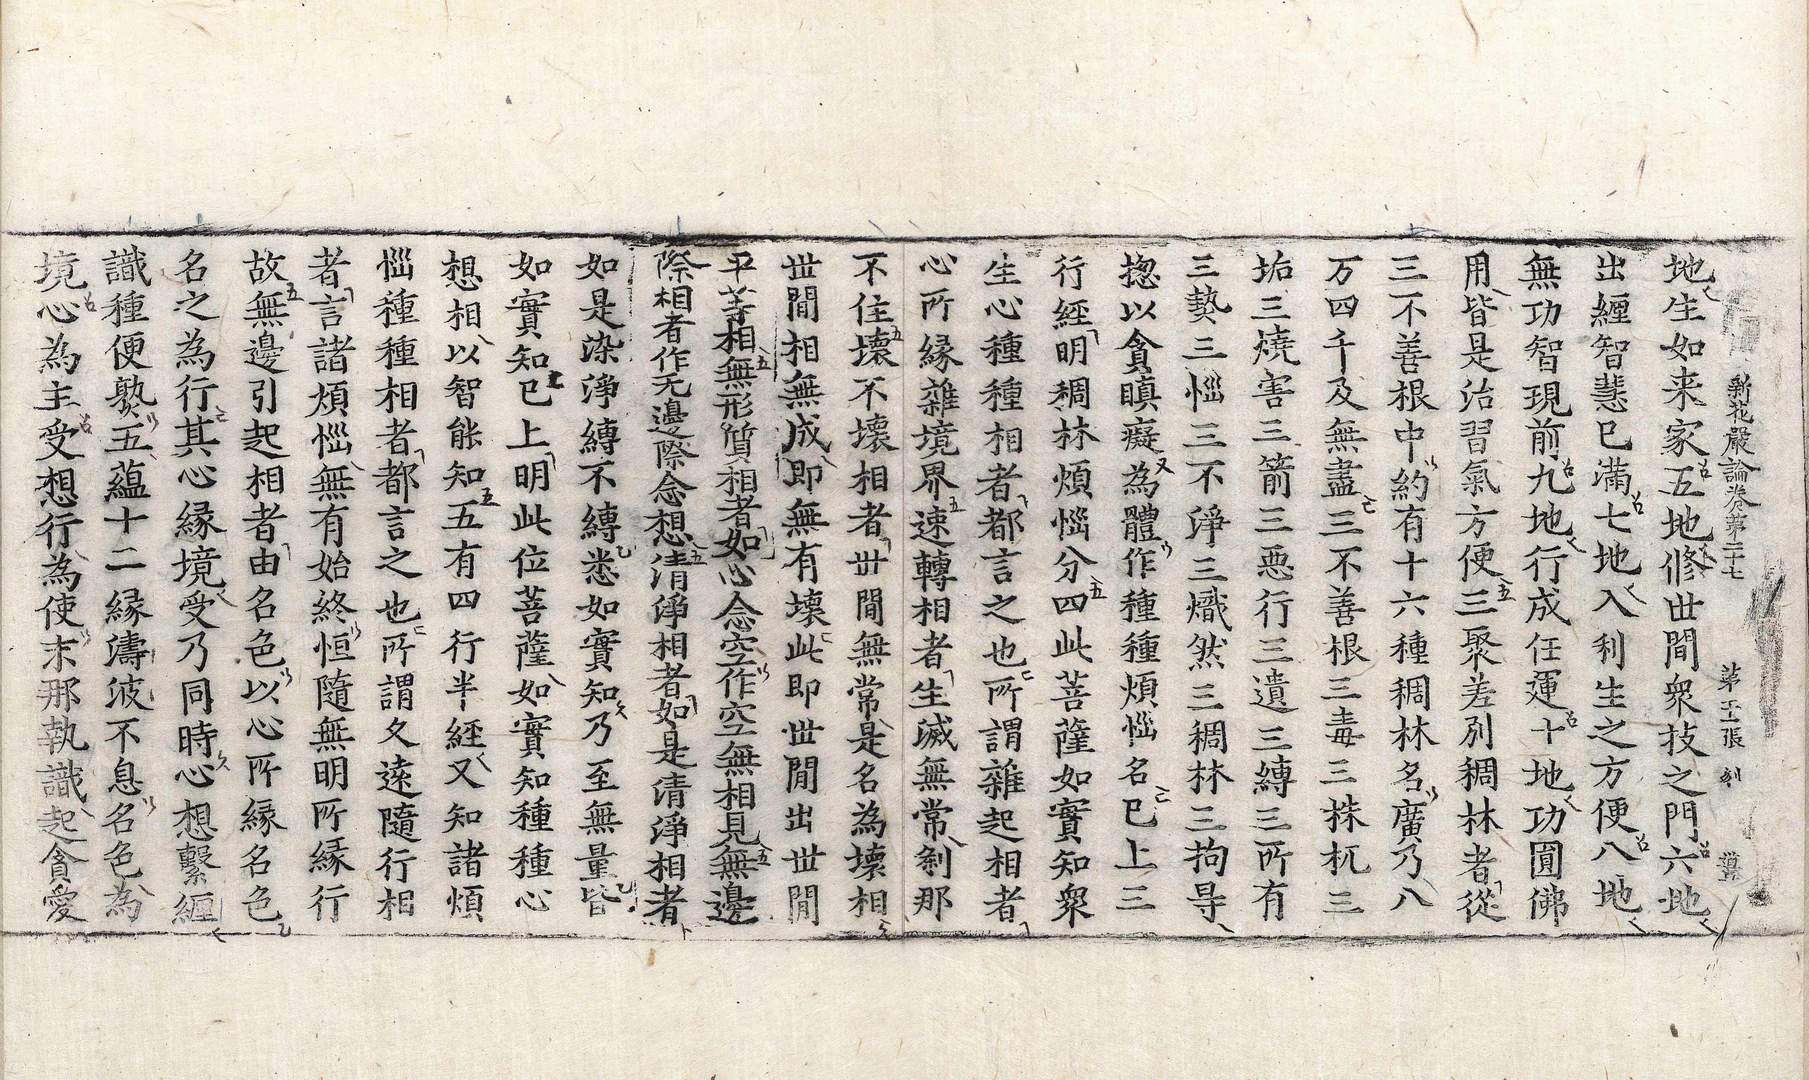 新花嚴論卷第二十七　第十二張　刻
地生如来家五地修世間衆技之門六地
出纒智慧已滿七地入利生之方便八地
無功智現前九地行成任運十地功圓佛
用皆是治習氣方便三聚差别稠林者從
三不善根中約有十六種稠林名廣乃八
万四千及無盡三不善根三毒三株杌三
垢三燒害三箭三惡行三遺三縛三所有
三𤍠三惱三不淨三熾然三稠林三拘㝵
揔以貪瞋癡為體作種種煩惱名已上三
行經明稠林煩惱分四此菩薩如實知衆
生心種種相者都言之也所謂雜起相者
心所縁雜境界速轉相者生滅無常刹那
不住壞不壞相者世間無常是名為壞相
世間相無成即無有壞此即世間出世間
平等相無形質相者如心念空作空無相見無邊
際相者作无邊際念想清淨相者如是清淨相者
如是染淨縛不縛悉如實知乃至無量皆
如實知已上明此位菩薩如實知種種心
想相以智能知五有四行半經又知諸煩
惱種種相者都言之也所謂久遠隨行相
者言諸煩惱無有始終恒隨無明所縁行
故無邊引起相者由名色以心所縁名色
名之為行其心縁境受乃同時心想繫纒
識種便𤍠五蘊十二縁濤波不息名色為
境心為主受想行為使末那執識起貪愛